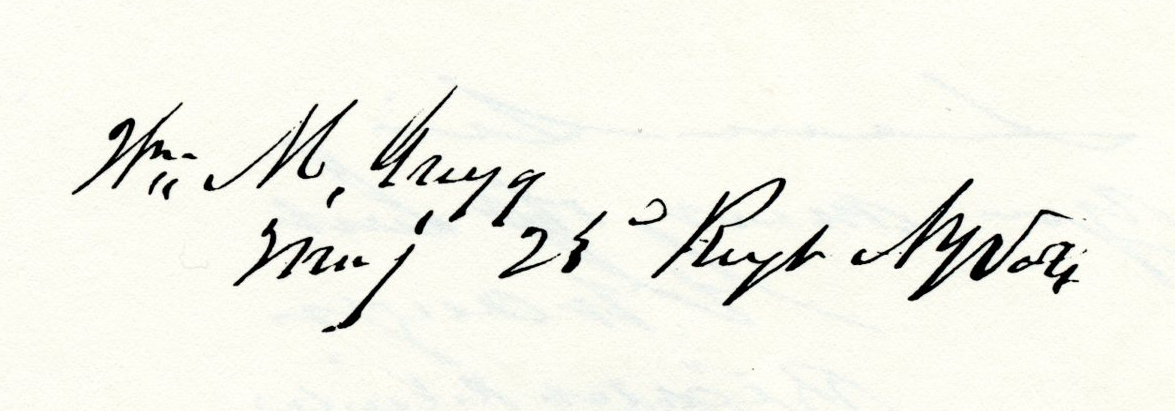 Wm M. Gregg
Maj 23d Regt NYVols